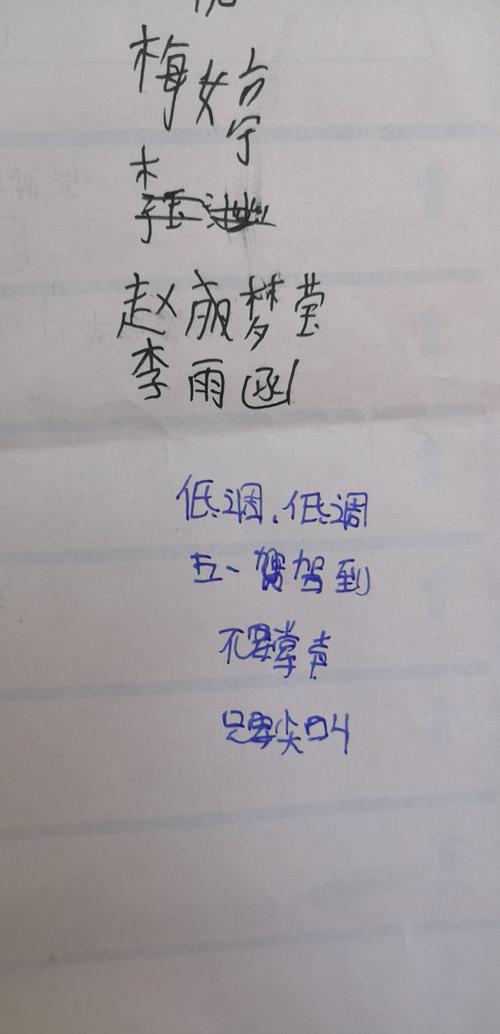 梅婷
赵梦莹
李雨函
低调、低调
五一驾到
不要掌声
只要尖叫